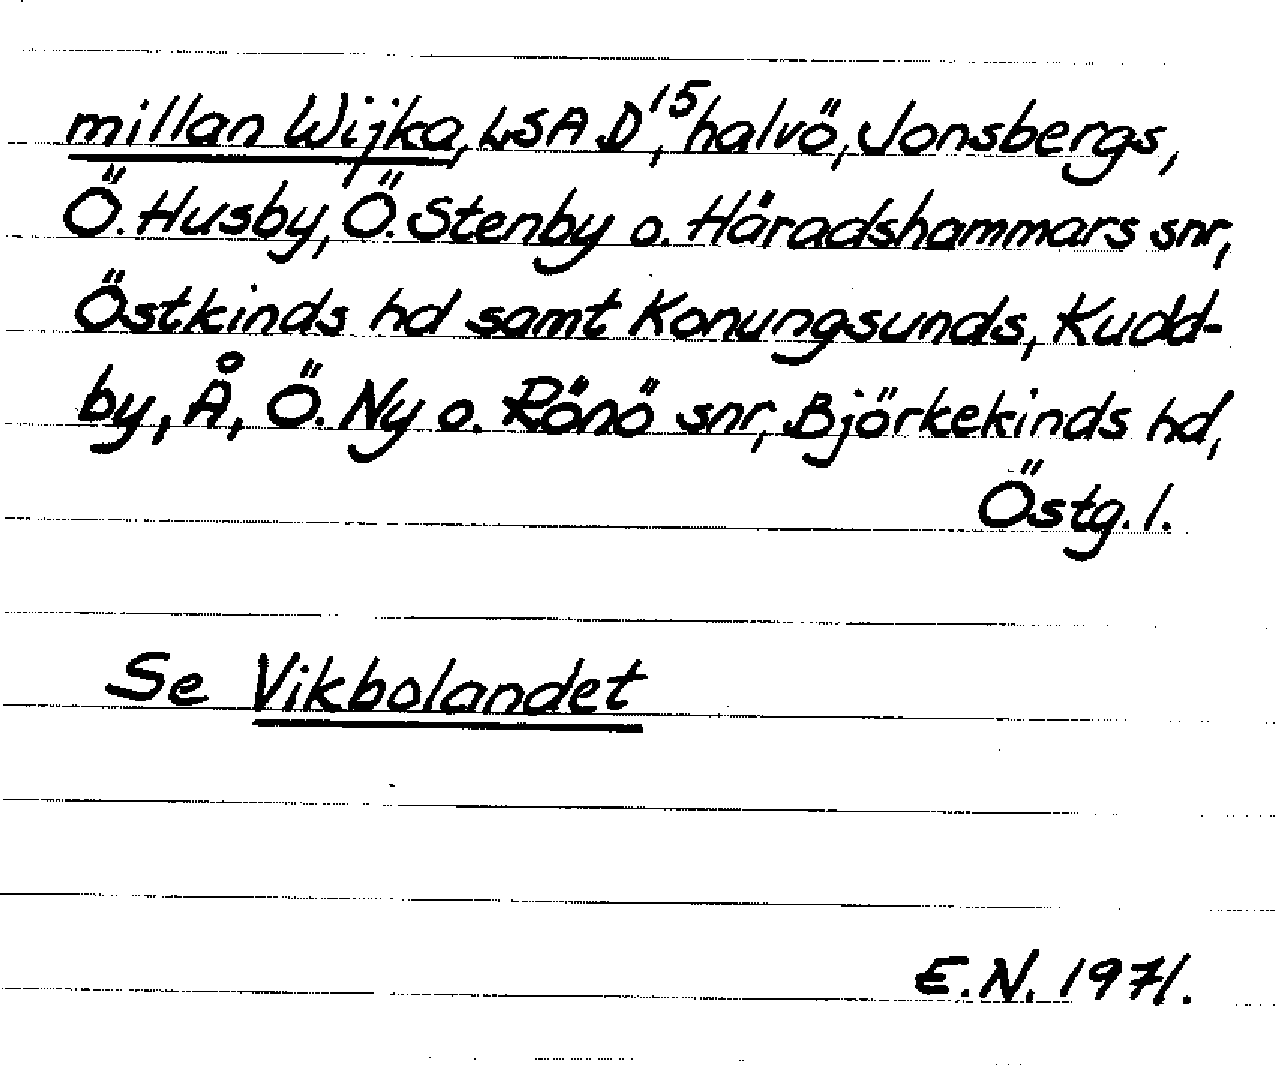 millan Wijka, LSA D¹⁵, halvö, Jonsbergs,
Ö. Husby, Ö. Stenby o. Häradshammars snr,
Östkinds hd samt Konungsunds, Kudd-
by, Å, Ö. Ny o. Rönö snr, Björkekinds hd,
Östg. l.
Se Vikbolandet
E.N. 1971.